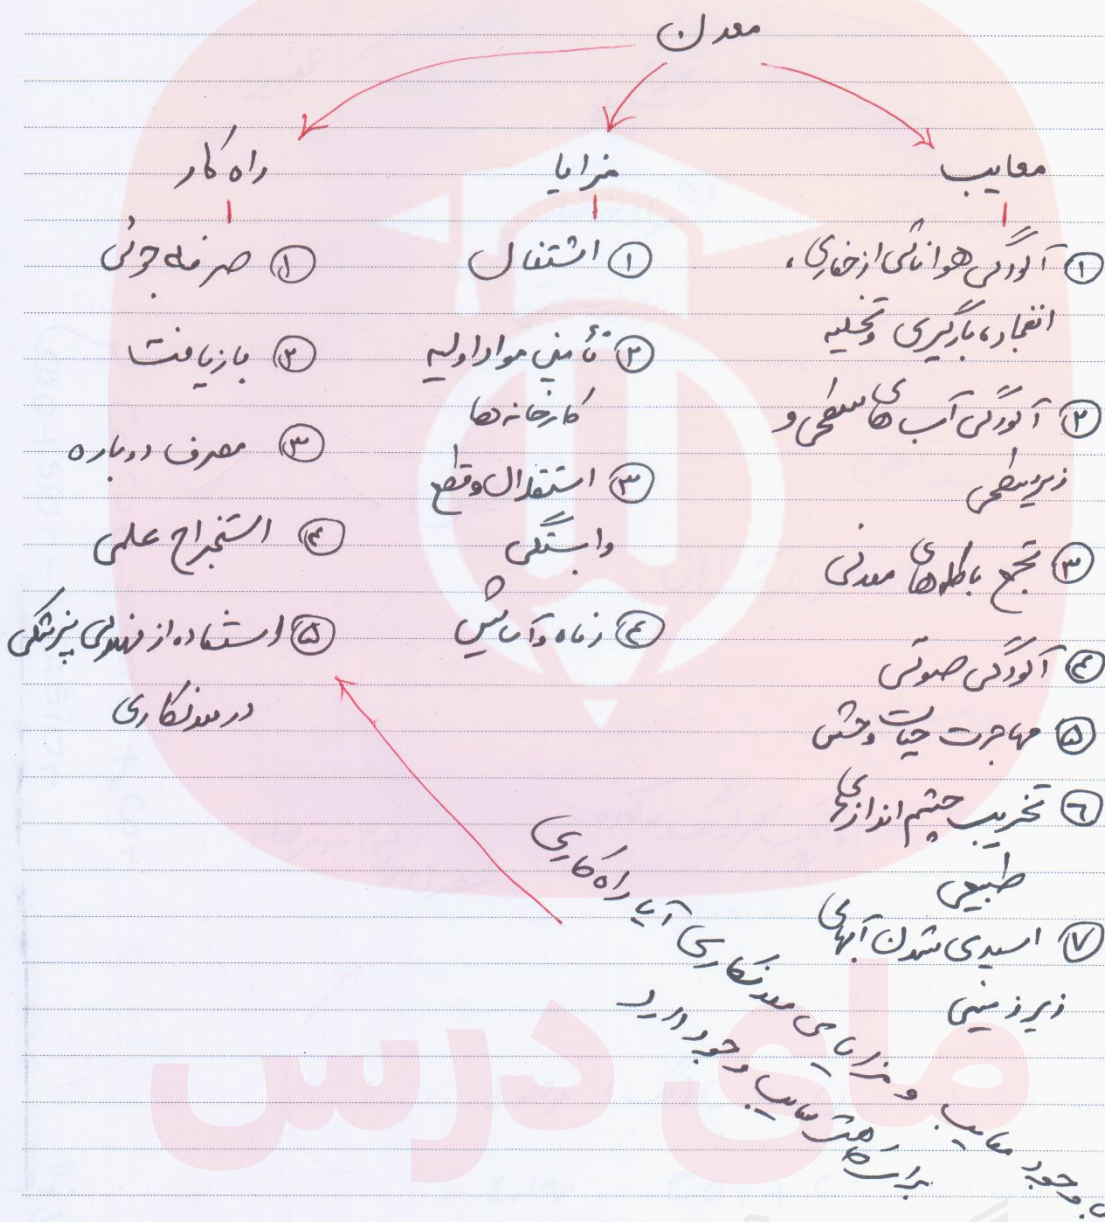 معدن
معایب
① آلودگی هوا ناشی از حفاری،
انفجار، بارگیری و تخلیه
② آلودگی آب های سطحی و
زیر سطحی
③ تجمع باطله های معدنی
④ آلودگی صوتی
⑤ مهاجرت حیات وحش
⑥ تخریب چشم اندازهای
طبیعی
⑦ اسیدی شدن آبهای
زیرزمینی
مزایا
① اشتغال
② تأمین مواد اولیه
کارخانه ها
③ استقلال و قطع
وابستگی
④ رفاه و آسایش
راه کار
① صرفه جوئی
② بازیافت
③ مصرف دوباره
④ استخراج علمی
⑤ استفاده از
در معدنکاری
وجود معایب و مزایای معدنکاری آیا راه کاری
برای کاهش معایب وجود دارد
مای درس